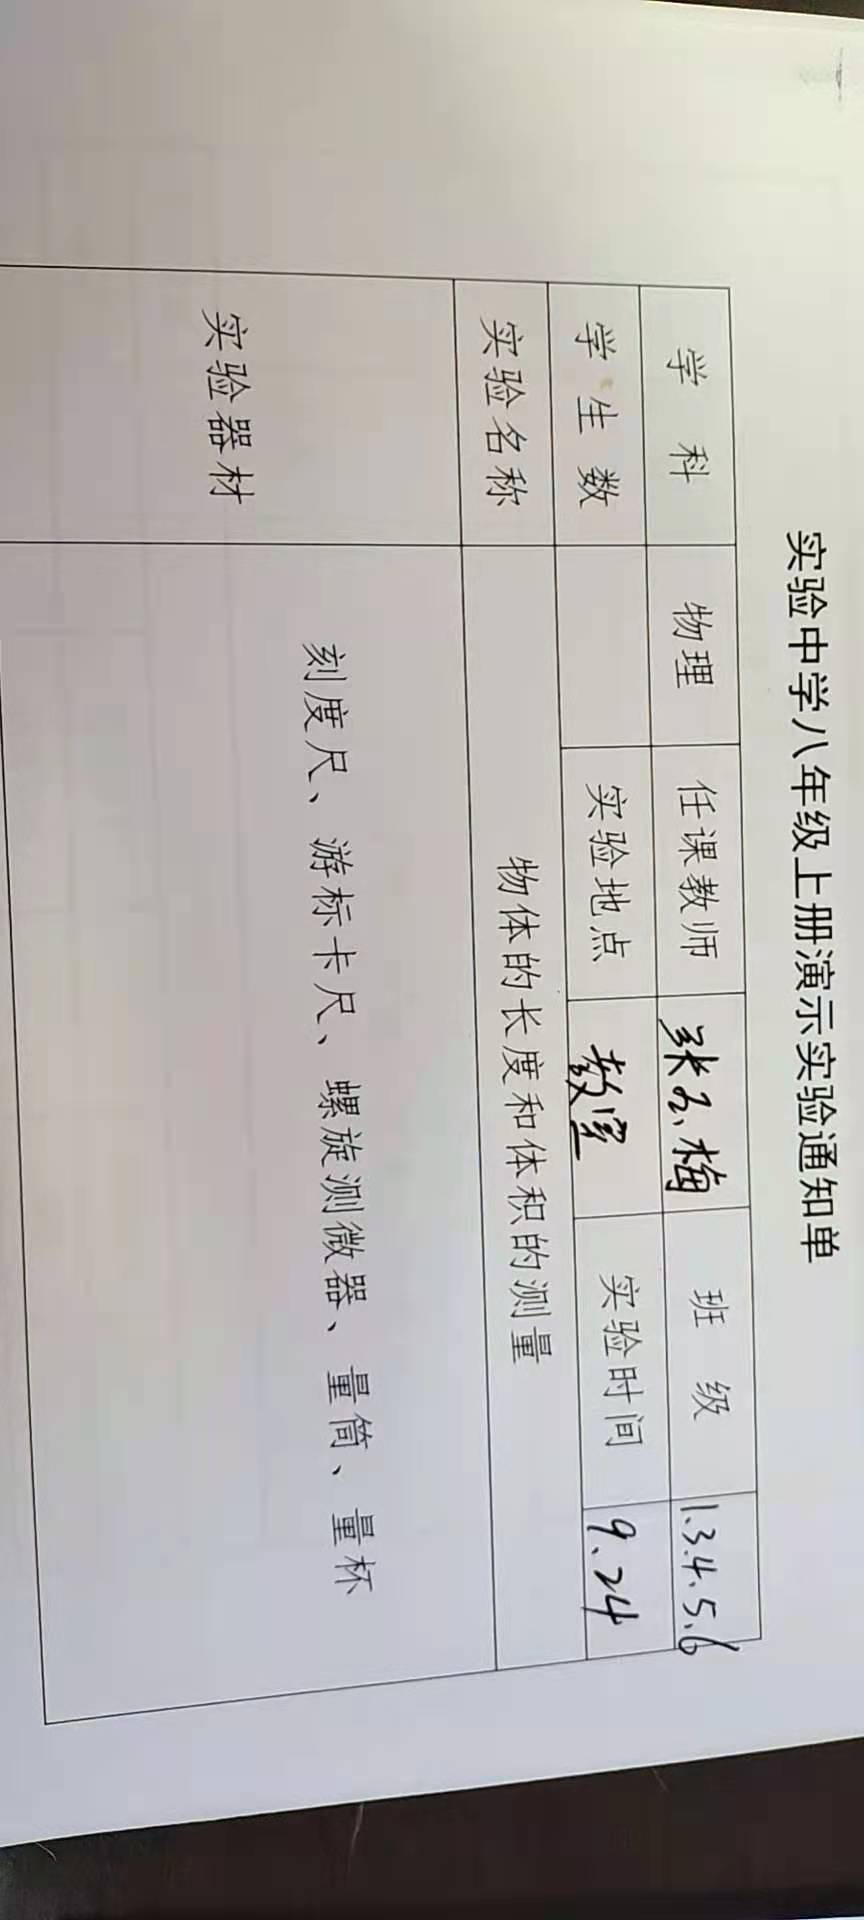 实验中学八年级上册演示实验通知单
学 科 物理 任课教师 张玉梅 班 级 1.3.4.5.6
学 生 数 实验地点 教室 实验时间 9.24
实验名称 物体的长度和体积的测量
实验器材 刻度尺、游标卡尺、螺旋测微器、量筒、量杯